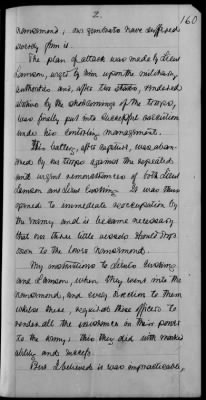 2.
160
Nansemond; our gunboats have suffered
The plan of attack was made by Lieut
Lamson, urged by him upon the military
authorities and, after two rendered
by the of the troops,
was finally put into successful execution
under his management.
This battery, after capture, was aban-
doned by our troops against the repeated
and urgent remonstrances of both Lieut
Lamson and Lieut Cushing. It was thus
opened to immediate reoccupation by
the enemy and it became necessary
that our three little vessels should drop
down to the lower Nansemond.
My instructions to Lieuts Cushing
and Lamson, when they went into the
Nansemond, and every direction to them
whilst there, required these officers to
render all the assistance in their power
to the army; this they did with marked
ability and success.
But I believed it was impracticable,